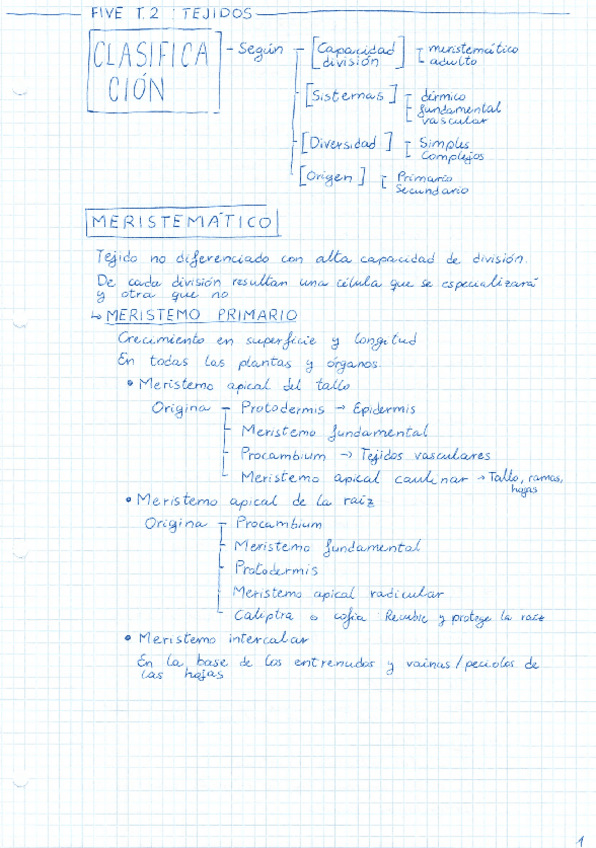 FIVE T.2 : TEJIDOS
CLASIFICA
CIÓN
- Según
[Capacidad división]
meristemático
adulto
[Sistemas]
dérmico
fundamental
vascular
[Diversidad]
Simples
Complejos
[Origen]
Primario
Secundario
MERISTEMÁTICO
Tejido no diferenciado con alta capacidad de división.
De cada división resultan una célula que se especializará
y otra que no
↳ MERISTEMO PRIMARIO
Crecimiento en superficie y longitud
En todas las plantas y órganos.
• Meristemo apical del tallo
Origina
Protodermis → Epidermis
Meristemo fundamental
Procambium → Tejidos vasculares
Meristemo apical caulinar → Tallo, ramas,
hojas
• Meristemo apical de la raíz
Origina
Procambium
Meristemo fundamental
Protodermis
Meristemo apical radicular
Caliptra o cofia Recubre y protege la raíz
• Meristemo intercalar
En la base de los entrenudos y vainas/peciolos de
las hojas
1